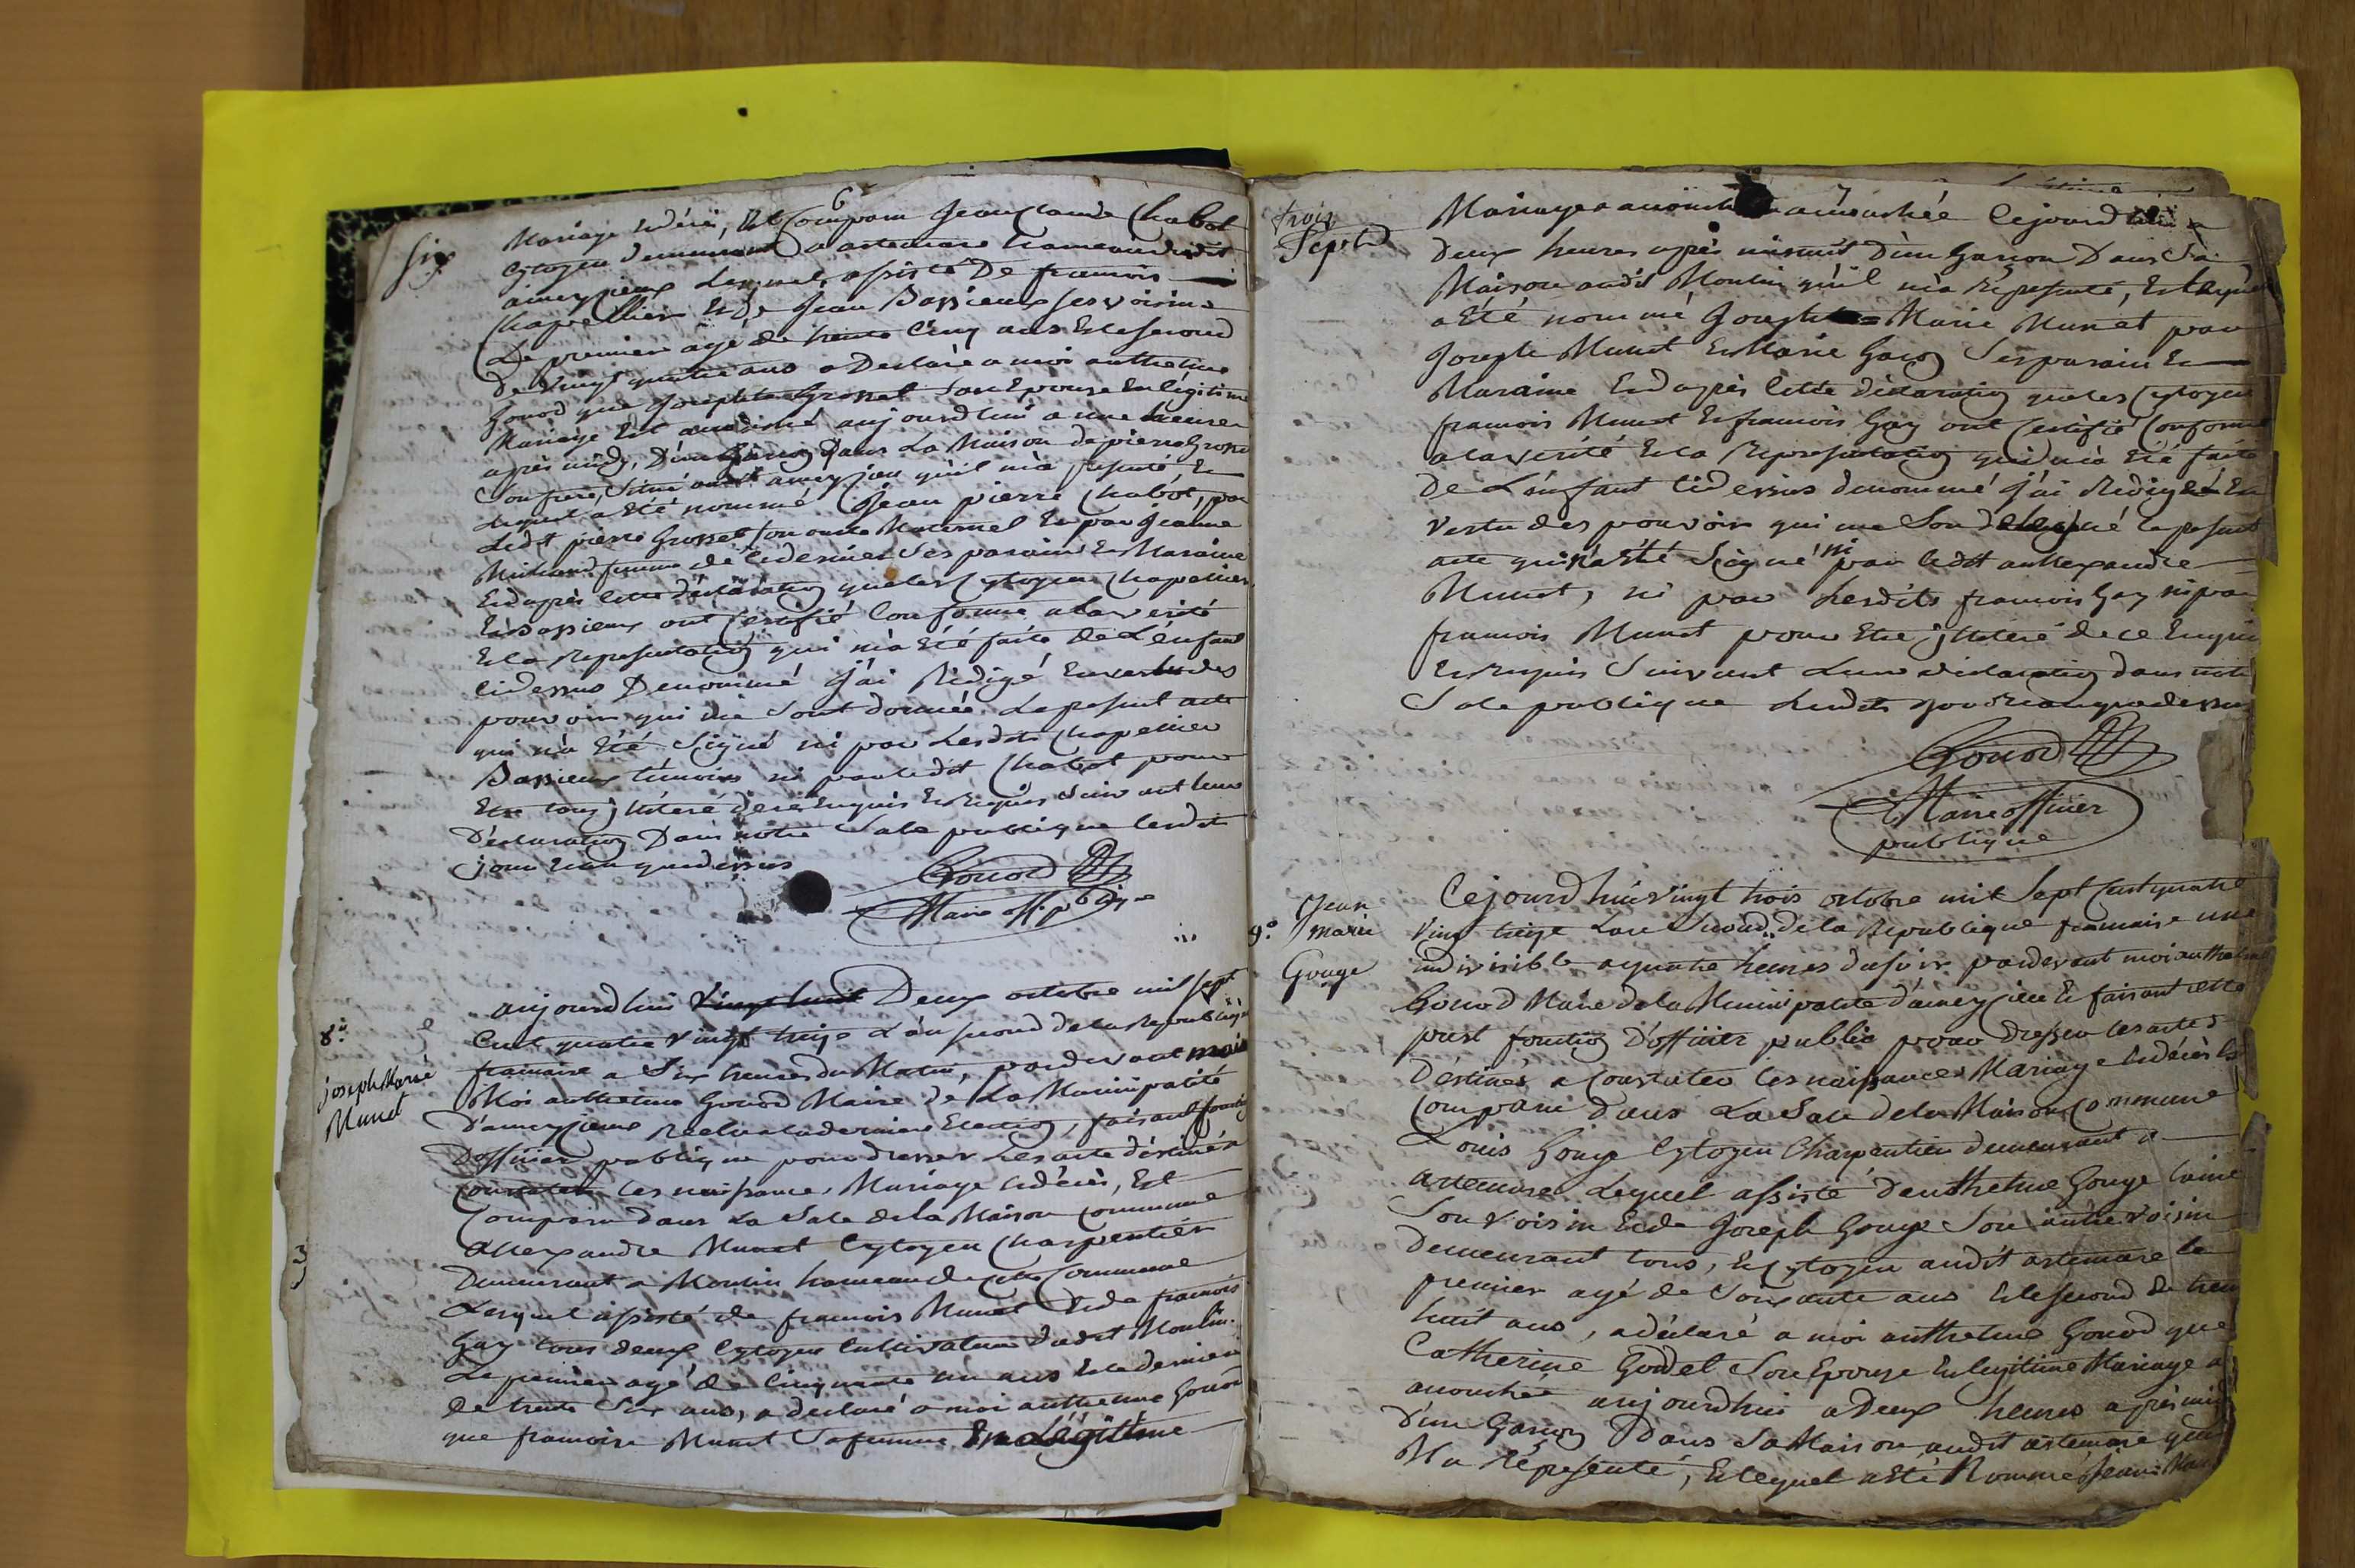 6
Six
Mariage et décès, Est Comparu Jean Claude Chabot
Cytoyen demeurant a artemare hameau dudit
ameyzieux Lequel assisté De francois
Chapellier et de Jean Bassieux ses voisins
Le premier agé de trente Cinq ans Et le second
De vingt quatre ans a Declaré a moi anthelme
Gonod que Josephte Grosset Son Epouse En légitime
Mariage Est accouché aujourd'hui a une heure
après midy, D'un Garcon Dans La Maison de pierre Grosset
Son frere, Situé audit ameyzieu qu'il m'a presenté, Et
Lequel a Eté nommé Jean pierre Chabot, par
Ledit pierre Grosset Son oncle Maternel Et par Jeanne
femme de Ce dernier Ses parain Et Maraine
Et d'après Cette déclaration que les Cytoyens Chapellier
Et Bassieux ont Certifié Conforme a la vérité
Et la Representation qui m'a Eté faite de L'énfant
Cidessus Denommé J'ai Rédigé En vertu des
pouvoirs qui me Sont donnés Le present acte
qui n'a Eté Signé ni par Lesdits Chapellier
Bassieux témoins ni par ledit Chabot pour
Etre tous illiteré de ce Enquis Et Requis Suivant leur
Déclaration Dans notre Sale publique Lesdit
jour Et an que dessus
Gonod
Maire off. publique
8.e
joseph Marie
Munet
aujourdhui vingt huit Deux octobre mil sept
Cent quatre vingt treize L'an second de la Republique
francaise a Six heures du Matin, pardevant moi
Moi anthelme Gonod Maire de La Municipalité
D'ameyzieux Réelu a la derniere Election, faisant fonction
D'officier publique pour dresser Les acte déstinés a
Constater Les naissances, Mariage et décès, Est
Comparu dans La Sale de la Maison Commune
Allexandre Munet Cytoyen Charpentier
Demeurant a Moulin hameau de cette Commune
Lesquel assisté de francois Munet Et de francois
Gay tous deux Cytoyen Cultivateur dudit Moulin
Le premier agé de Cinquante un ans Et le dernier
de trente Six ans, a declaré a moi anthelme Gonod
que francoise Munet Sa femme En Légitime
3
7
trois
Sept
Mariage a accouch accouchée Cejourd'hui a
Deux heures après minuit D'un Garcon Dans Sa
Maison audit Moulin qu'il m'a Representé, Et lequel
a Eté nommé Joseph Marie Munet par
Joseph Munet Et Marie Gacon Ses parain Et
Maraine Et d'après Cette déclaration que les Cytoyen
francois Munet Et francois Gay ont Certifié Conforme
a la vérité Et la Representation qui m'a Eté faite
De L'énfant Cidessus denommé J'ai Rédigé En
vertu des pouvoir qui me Son délégué le present
acte qui n'a été Signé ni par ledit allexandre
Munet, ni par Lesdits francois Gay ni par
francois Munet pour Etre illiteré de ce Enquis
Et Requis Suivant Leur déclaration dans notre
Sale publique Lesdits jour Et an que dessus
Gonod
Maire officier
publique
9.e
Jean
marie
Gouge
Cejourd'hui vingt trois octobre mil Sept Cent quatre
vingt treize L'an Second de la Republique francaise une
indivisible a quatre heures du soir pardevant moi anthelme
Gonod Maire de la Municipalité d'ameyzieu Et faisant cette
part fonction D'officier public pour dresser les actes
Déstinés a Constater les naissances Mariage et décès Est
Comparu Dans La Sale de la Maison Commune
Louis Gouge Cytoyen Charpentier demeurant a
artemare Lequel assisté d'anthelme Gouge L'ainé
Son voisin Et de Joseph Gouge Son autre voisin
Demeurant tous, Et Cytoyen audit artemare le
premier agé de Soixante ans Et le second de trente
huit ans, a déclaré a moi anthelme Gonod que
Catherine Godet Son Epouse En legitime Mariage a
accouchée aujourdhui a Deux heures après midi
D'un Garcon Dans Sa Maison audit artemare qu'il
M'a Répresenté, Et lequel a Eté Nommé Jean Marie